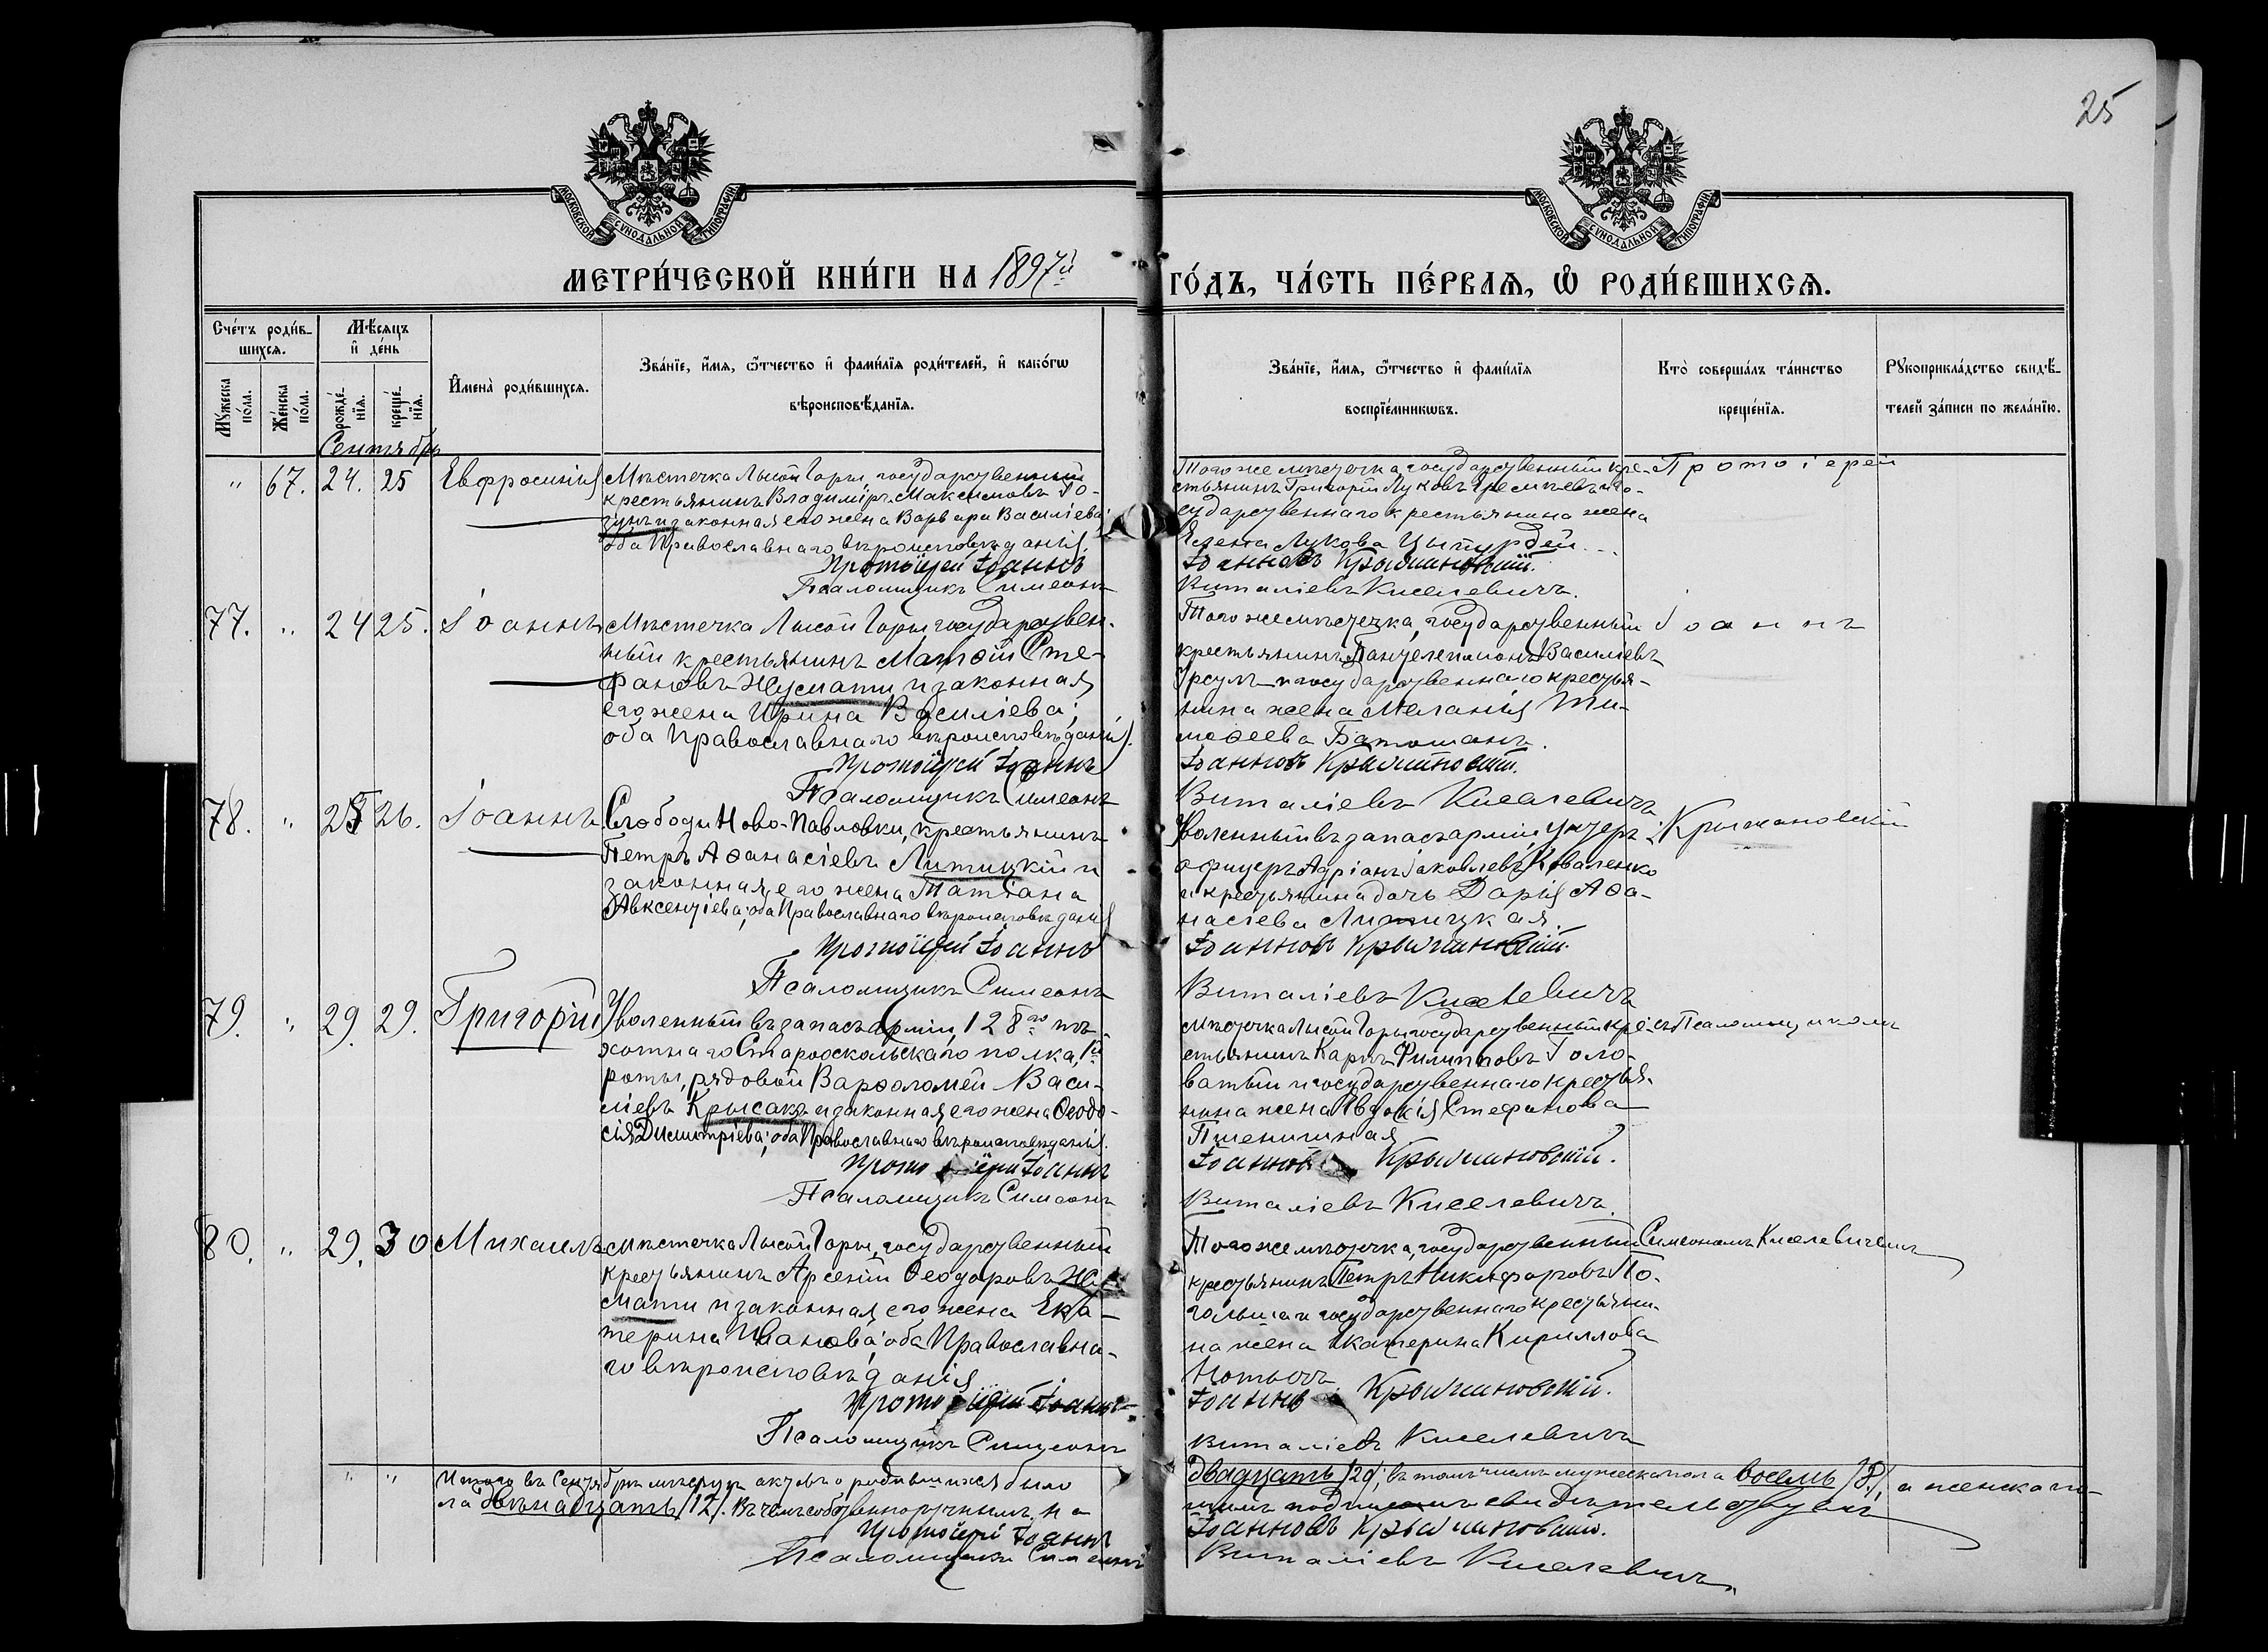 25
МОСКОВСКОЙ СУНОДАЛЬНОЙ ТИПОГРАФІИ.
МОСКОВСКОЙ СУНОДАЛЬНОЙ ТИПОГРАФІИ.
МЕТРИ́ЧЕСКОЙ КНИ́ГИ НА 1897й ГО́ДЪ, ЧА́СТЬ ПЕ́РВАѦ, Ѡ РОДИ́ВШИХСѦ.
Сче́тъ роди́в-
шихсѧ.
Мꙋ́жеска по́ла.
Же́нска по́ла.
Мѣ́сѧцъ
и҆ де́нь
рожде́-
нїѧ.
креще́-
нїѧ.
И҆мена̀ роди́вшихсѧ.
Зва́нїе, и҆́мѧ, ѻ҆́тчество и҆ фами́лїѧ роди́телей, и҆ како́гѡ
вѣроисповѣ́данїѧ.
Зва́нїе, и҆́мѧ, ѻ҆́тчество и҆ фами́лїѧ
воспрїе́мникѡвъ.
Кто̀ соверша́лъ та́инство
креще́нїѧ.
Рꙋкоприкла́дство свидѣ́-
телей за́писи по жела́нїю.
Сентябрь
" 67. 24. 25 Евфросинія
Мѣстечка Лысой Горы, государственный
крестьянинъ Владиміръ Максимовъ Го-
зунъ и законная его жена Варвара Василіева;
оба Православнаго вѣроисповѣданія.
Протоіерей Іоаннъ
Псаломщикъ Симеонъ
Того же мѣстечка, государственный кре-
стьянинъ Григорій Луковъ и го-
сударственнаго крестьянина жена
Елена Лукова
Іоанновъ Крыжановскій.
Виталіевъ Киселевичъ.
Протоіерей
77. " 24 25. Іоаннъ
Мѣстечка Лысой Горы, государствен-
ный крестьянинъ Матѳій Сте-
фановъ Жусмати и законная
его жена Ирина Василіева;
оба Православнаго вѣроисповѣданія.
Протоіерей Іоаннъ
Псаломщикъ Симеонъ
Того же мѣстечка, государственный
крестьянинъ Пантелеимонъ Василіевъ
Урсулъ и государственнаго крестья-
нина жена Меланія Ти-
моѳеева Батошанъ.
Іоанновъ Крыжановскій.
Виталіевъ Киселевичъ
Іоаннъ
78. " 25 26. Іоаннъ
Слободы Ново-Павловки, крестьянинъ
Петръ Аѳанасіевъ Литицкій и
законная его жена Татіана
Авксентіева; оба Православнаго вѣроисповѣданія
Протоіерей Іоаннъ
Псаломщикъ Симеонъ
Уволенный въ запасъ арміи, унтеръ-
офицеръ Адріанъ Іаковлевъ Коваленко
и крестьянина дочь Дарія Аѳа-
насіева Литицкая.
Іоанновъ Крыжановскій.
Виталіевъ Киселевичъ
Крыжановскій
79. " 29. 29. Григорій
Уволенный въ запасъ арміи, 128го пѣ-
хотнаго Старооскольскаго полка, 1й
роты, рядовой Варѳоломей Васи-
ліевъ Крысакъ и законная его жена Ѳеодо-
сія Димитріева; оба Православнаго вѣроисповѣданія.
Протоіерей Іоаннъ
Псаломщикъ Симеонъ
Мѣстечка Лысой Горы, государственный кре-
стьянинъ Карпъ Филипповъ Голо-
ватый и государственнаго крестья-
нина жена Евдокія Стефанова
Пшеничная
Іоанновъ Крыжановскій.
Виталіевъ Киселевичъ.
съ Псаломщикомъ
80. " 29. 30 Михаилъ
Мѣстечка Лысой Горы, государственный
крестьянинъ Арсеній Ѳеодоровъ Жус-
мати и законная его жена Ека-
терина Иванова; оба Православна-
го вѣроисповѣданія
Протоіерей Іоаннъ
Псаломщикъ Симеонъ
Того же мѣстечка, государственный
крестьянинъ Петръ Никифоровъ По-
и государственнаго крестьяни-
на жена Екатерина Кириллова
Іоанновъ Крыжановскій.
Виталіевъ Киселевичъ
Симеономъ Киселевичемъ
" " Итого въ Сентябрѣ мѣсяцѣ актовъ о родившихся было
двадцать /20/; въ томъ числѣ мужеска пола восемь /8/, а женска по-
ла двѣнадцать /12/. Въ чемъ собственноручнымъ на-
шимъ подписомъ свидѣтельствуемъ
Протоіерей Іоаннъ
Іоанновъ Крыжановскій.
Псаломщикъ Симеонъ
Виталіевъ Киселевичъ.